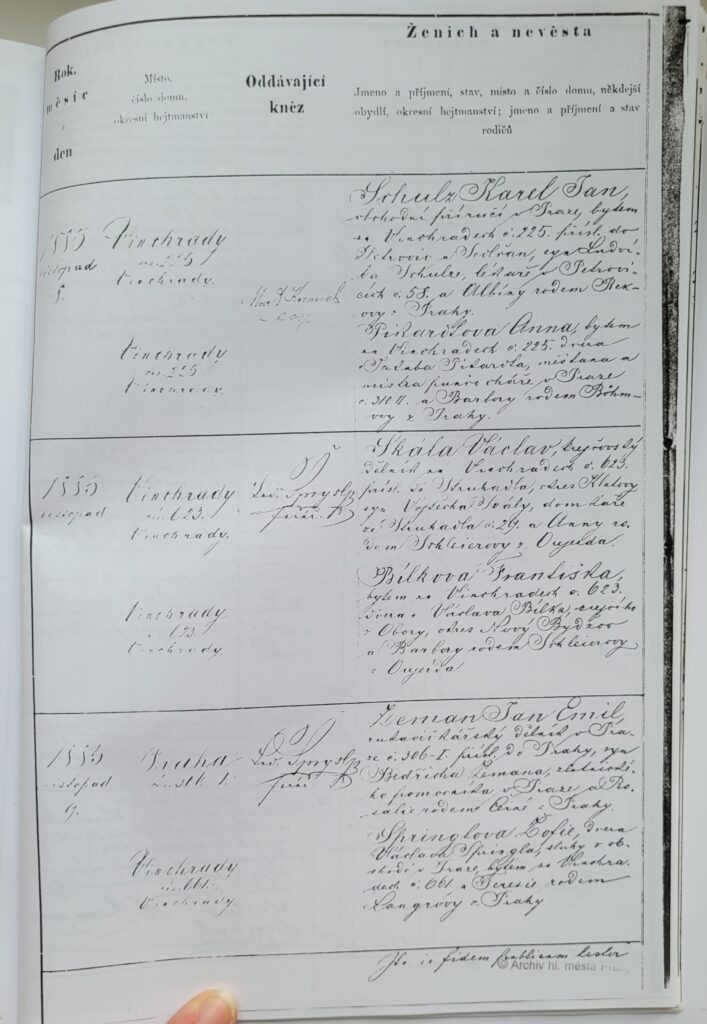 Ženich a nevěsta
Rok,
měsíc
a
den
Místo,
číslo domu,
okresní hejtmanství
Oddávající
kněz
Jmeno a příjmení, stav, místo a číslo domu, někdejší
obydlí, okresní hejtmanství; jmeno a příjmení a stav
rodičů
listopad
Vinohrady
čís. 225
Vinohrady.
Schulz Karel Jan,
obchodní příručí v Praze, bytem
na Vinohradech č. 225. přísl. do
Petrovic u Sedlčan, syn Ludví-
ka Schulze, lékaře v Petrovi-
cích č. 58. a Albíny rodem
z Prahy.
Vinohrady
čís. 225.
Vinohrady.
Anna, bytem
na Vinohradech č. 225. dcera
Jakuba měšťana a
mistra punčocháře v Praze
č. 310 II. a Barbory rodem Böhm-
ovy z Prahy.
listopad
Vinohrady
čís. 623.
Vinohrady.
Skála Václav, krejčovský
dělník na Vinohradech č. 623.
přísl. do Struhadla, okres Klatovy
syn Vojtěcha Skály, domkáře
ze Struhadla č. 29. a Anny ro-
dem Schleierovy z Oujezda.
Vinohrady
čís. 623.
Vinohrady.
Bílkova Františka,
bytem na Vinohradech č. 623.
dcera Václava Bílka, krejčího
z Obory, okres Nový Bydžov
a Barbory rodem Schleierovy
z Oujezda.
listopad
9.
Praha
Zeman Jan Emil,
rukavičkářský dělník v Pra-
ze č. 306-I. přísl. do Prahy, syn
Bedřicha Zemana, zlatnické-
ho pomocníka v Praze a Ro-
salie rodem Černé z Prahy.
Vinohrady
čís. 661.
Vinohrady.
Springlova Žofie, dcera
Václava Springla, sluhy v ob-
chodě v Praze, bytem na Vinohra-
dech č. 661. a Terezie rodem
Langrovy z Prahy
fidem publicam testor
© Archiv hl. města Prahy